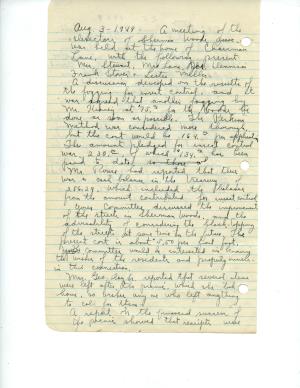 Aug. 3 - 1949 - A meeting of the
directors of Sherman Woods Assoc.
was held at the home of Chairman
Lane, with the following present
Mr. Stover, Mr. Lane, Doc
Frank Stover & Lester Miller.
A discussion developed on the results of
the fogging for insect control, and it
was agreed that another fogging by
Mr. Kinney at 45.00 for the Woods, be
done as soon as possible. The
method was considered more thorough
but the cost would be 164.00 per application.
The amount pledged for insect control
was 238.00 of which 134.00 has been
paid to date
Mr. Stover had reported that there
was a cash balance in the treasury
256.29, which included the balance
from the amount contributed for insect control
Your Committee discussed the improvement
of the streets in Sherman Woods, and the
advisability of considering the black topping
of the streets at some time in the future. The
present cost is about 4.00 per
Your Committee would be interested in having
the wishes of the residents and property owners
in this connection.
Mrs. Geo. reported that several items
were left after the picnic, which she had
home, so wishes any one who left anything
to call for them.
A report on the financial success of
the picnic showed that receipts were